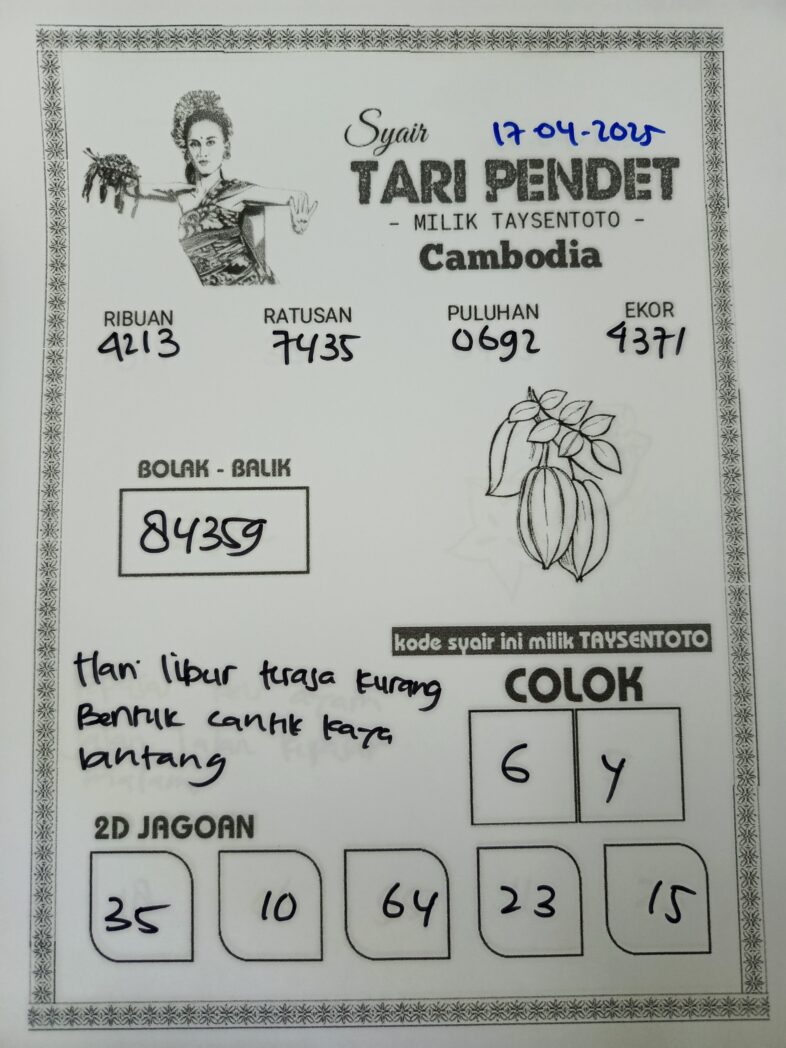 Syair 17-04-2025
TARI PENDET
- MILIK TAYSENTOTO -
Cambodia
RIBUAN RATUSAN PULUHAN EKOR
4213 7435 0692 4371
BOLAK - BALIK
84359
kode syair ini milik TAYSENTOTO
Hari libur terasa kurang
Bentuk cantik kaya
bintang
COLOK
6 4
2D JAGOAN
35 10 64 23 15